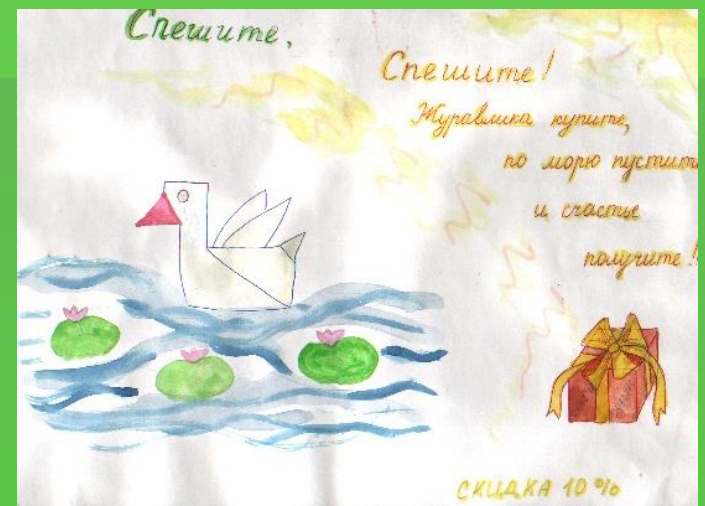 Спешите,
Спешите!
Журавлика купите,
по морю пустите
и счастье
получите!
СКИДКА 10%